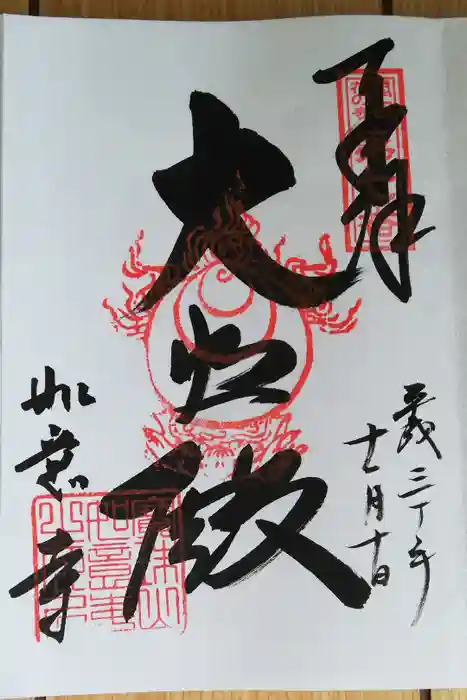 奉拝
平成三十年
十一月十日
大悲殿
如意寺